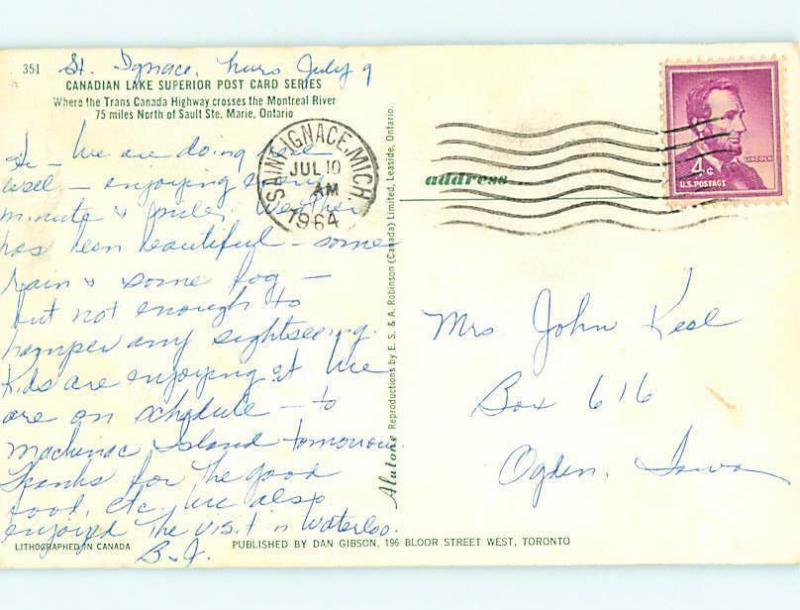 351
St. Ignace, Thurs July 9
CANADIAN LAKE SUPERIOR POST CARD SERIES
Where the Trans Canada Highway crosses the Montreal River
75 miles North of Sault Ste. Marie, Ontario
Hi - We are doing
well - enjoying every
minute & mile. Weather
has been beautiful - some
rain & some fog -
but not enough to
hamper any sightseeing.
Kids are enjoying it. We
are on schedule - to
Mackinac Island tomorrow.
Thanks for the good
food, etc. We also
enjoyed the visit in Waterloo.
B.J.
LITHOGRAPHED IN CANADA
PUBLISHED BY DAN GIBSON, 196 BLOOR STREET WEST, TORONTO
Alatone Reproductions by E. S. & A. Robinson (Canada) Limited, Leaside, Ontario.
SAINT IGNACE, MICH.
JUL 10
AM
1964
address
LINCOLN
4¢
U.S. POSTAGE
Mrs John
Box 616
Ogden, Iowa